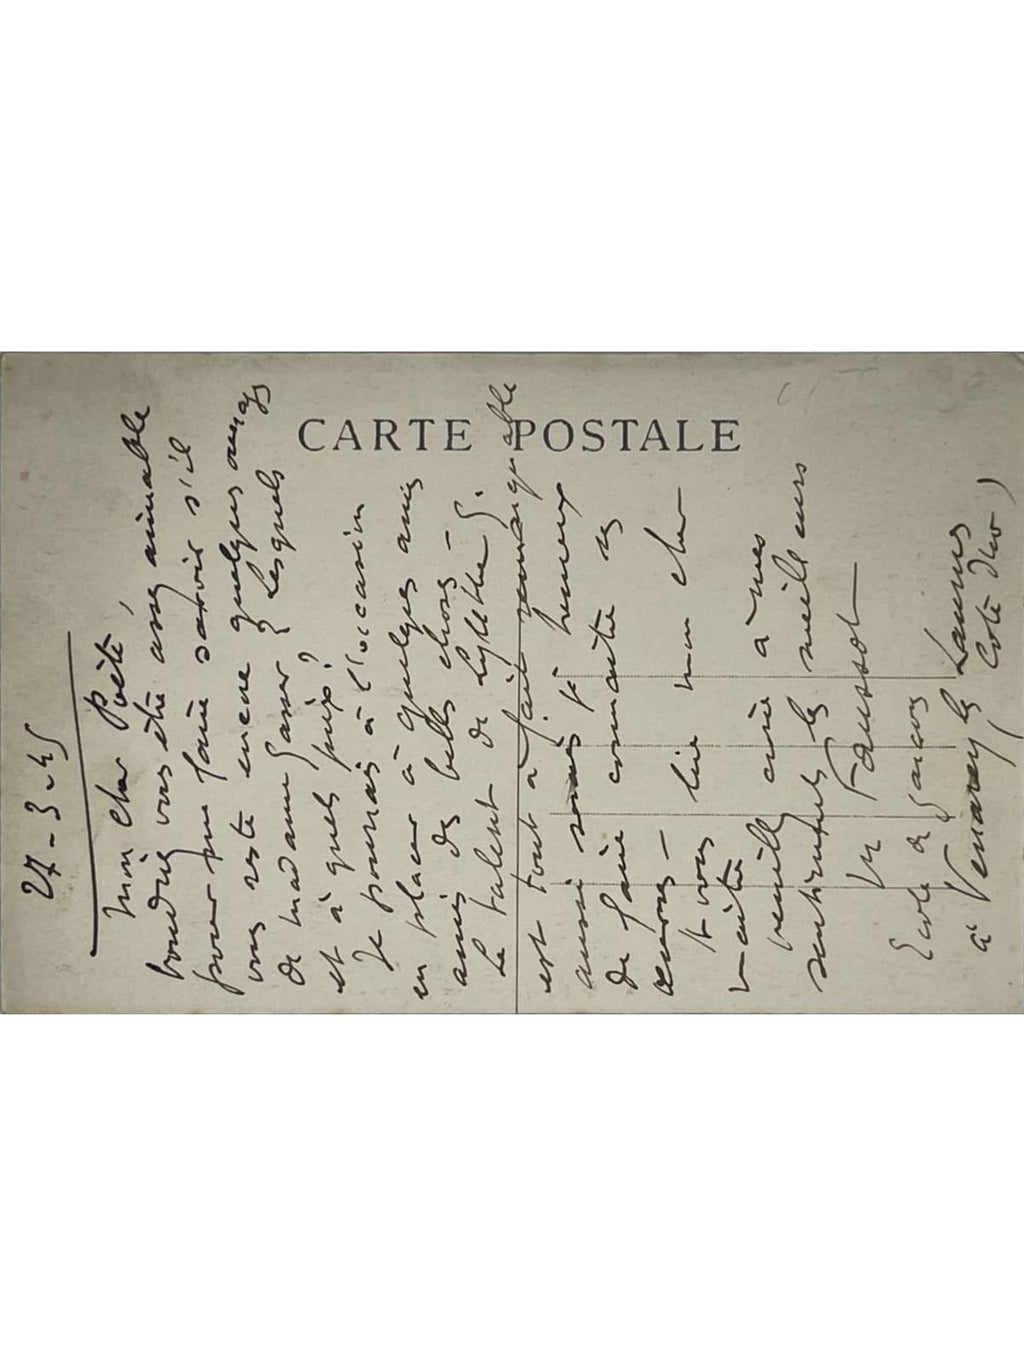 CARTE POSTALE
27-3-45
Mon cher Poète,
voudriez vous être assez aimable
pour me faire savoir s'il
vous reste encore quelques ouvrages
de madame Lesquels
et à quels prix?
Je pourrais à l'occasion
en placer à quelques amis
amis des belles choses –
Le talent de G.
est tout à fait remarquable
aussi serais je heureux
de faire connaître ses
œuvres –
et vous lire mon cher
maître
veuillez croire à mes
sentiments les meilleurs
Fausset
Ecole de garçons
à Venarey les Laumes
(Côte d'Or)